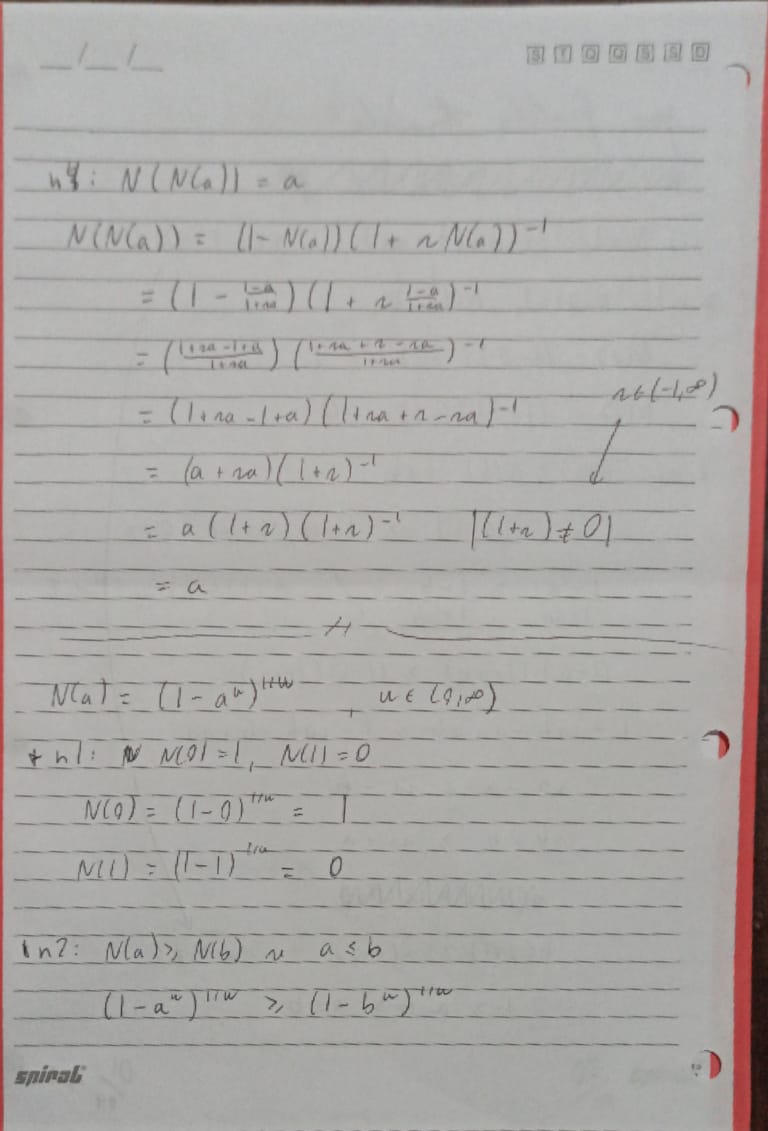 __/__/__ S T Q Q S S D
n4: N(N(a)) = a
N(N(a)) = (1 - N(a))(1 + r N(a))^-1
= (1 - (1-a)/(1+ra))(1 + r (1-a)/(1+ra))^-1
= ((1+ra-1+a)/(1+ra))((1+ra+r-ra)/(1+ra))^-1
r∈(-1,∞)
= (1+ra-1+a)(1+ra+r-ra)^-1
= (a+ra)(1+r)^-1
= a(1+r)(1+r)^-1 |(1+r)≠0|
= a
N(a) = (1-a^w)^1/w , w ∈ (0,∞)
* n1: N(0)=1, N(1)=0
N(0) = (1-0)^1/w = 1
N(1) = (1-1)^1/w = 0
n2: N(a) ≥ N(b) a ≤ b
(1-a^w)^1/w ≥ (1-b^w)^1/w
spiral